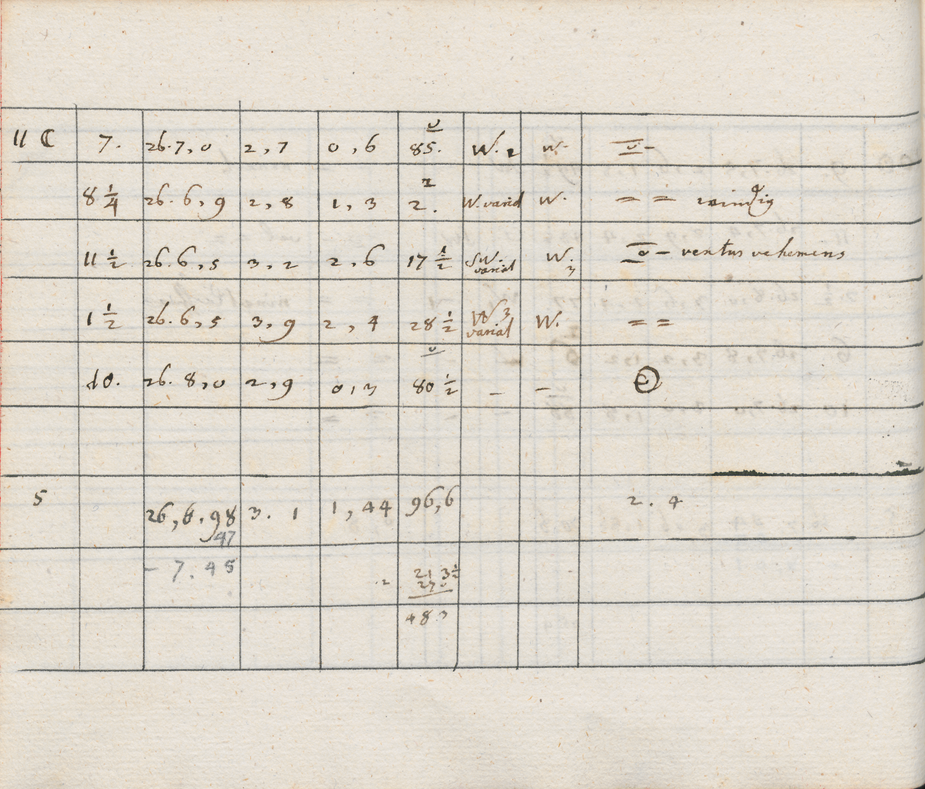 11 ☾ 7. 26.7,0 2,7 0,6 85. W.2 w.
8 1/4 26.6,9 2,8 1,3 2. W. variat W. = = windig
11 1/2 26.6,5 3,2 2,6 17 1/2 SW. variat W.3 ventus vehemens
1 1/2 26.6,5 3,9 2,4 28 1/2 W3 variat W. = =
10. 26.8,0 2,9 0,3 80 1/2 – –
5 26,6.98 3.1 1,44 96,6 2.4
47
- 7.45 21 3 1/2
27
48 3